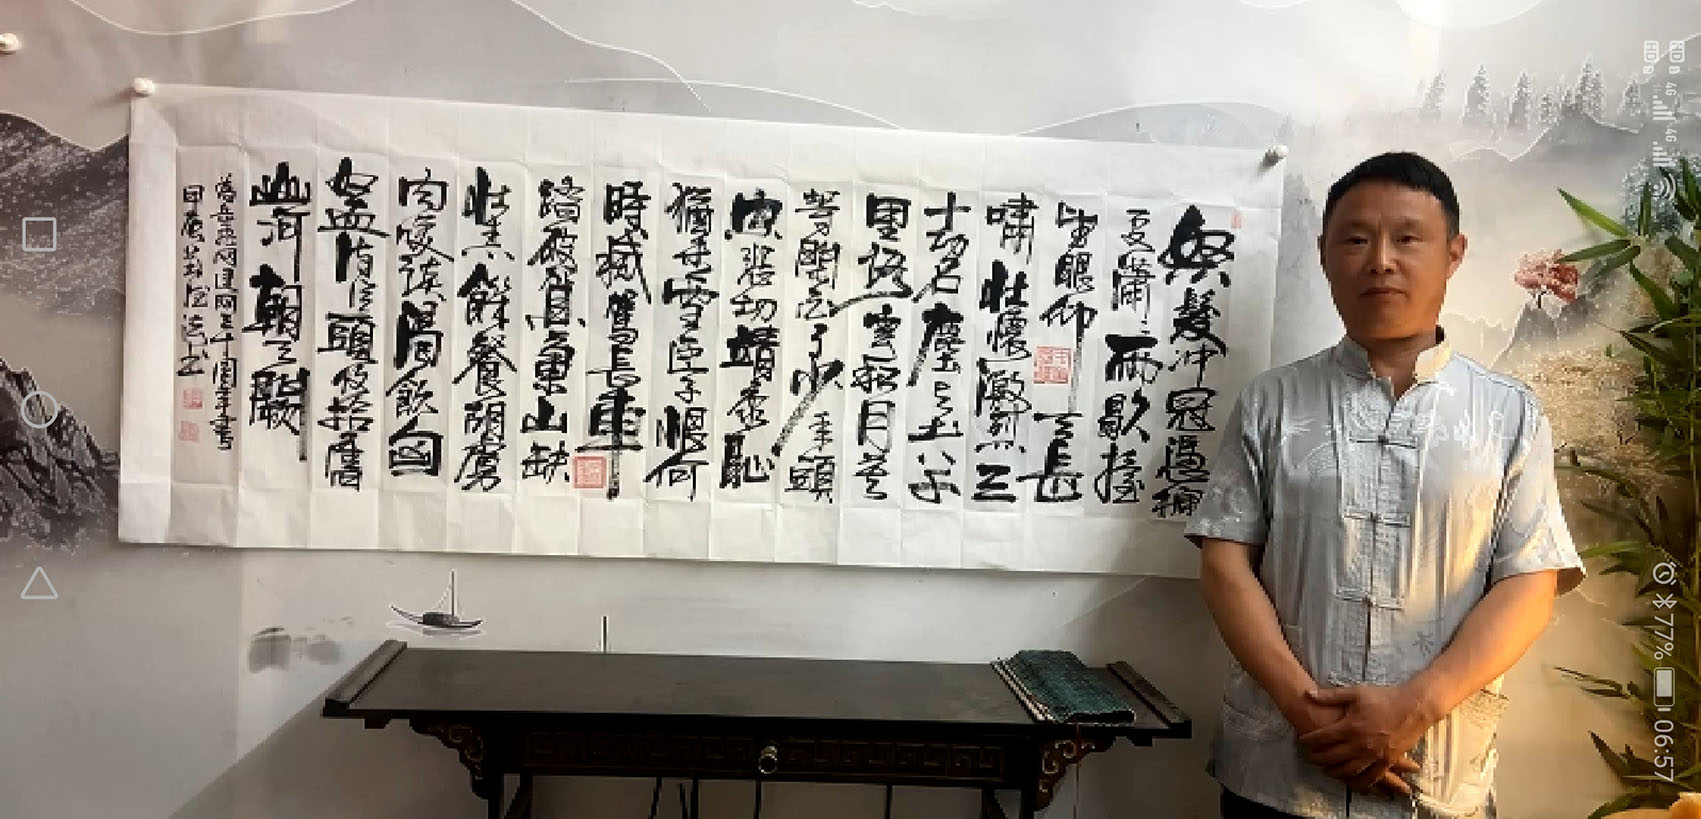 怒髮冲冠憑欄
瀟雨歇擡
望眼仰天長
嘯壯懷激烈三
十功名塵与土八千
里路雲和月莫
等閒白了少年頭
悲切靖康恥
猶未雪臣子恨何
時滅駕長車
踏破賀蘭山缺
壯志飢餐胡虜
肉笑談渴飲匈
奴血待從頭收拾舊
山河朝天闕
岳飛詞
HD 4G
HD 4G
77%
06:57